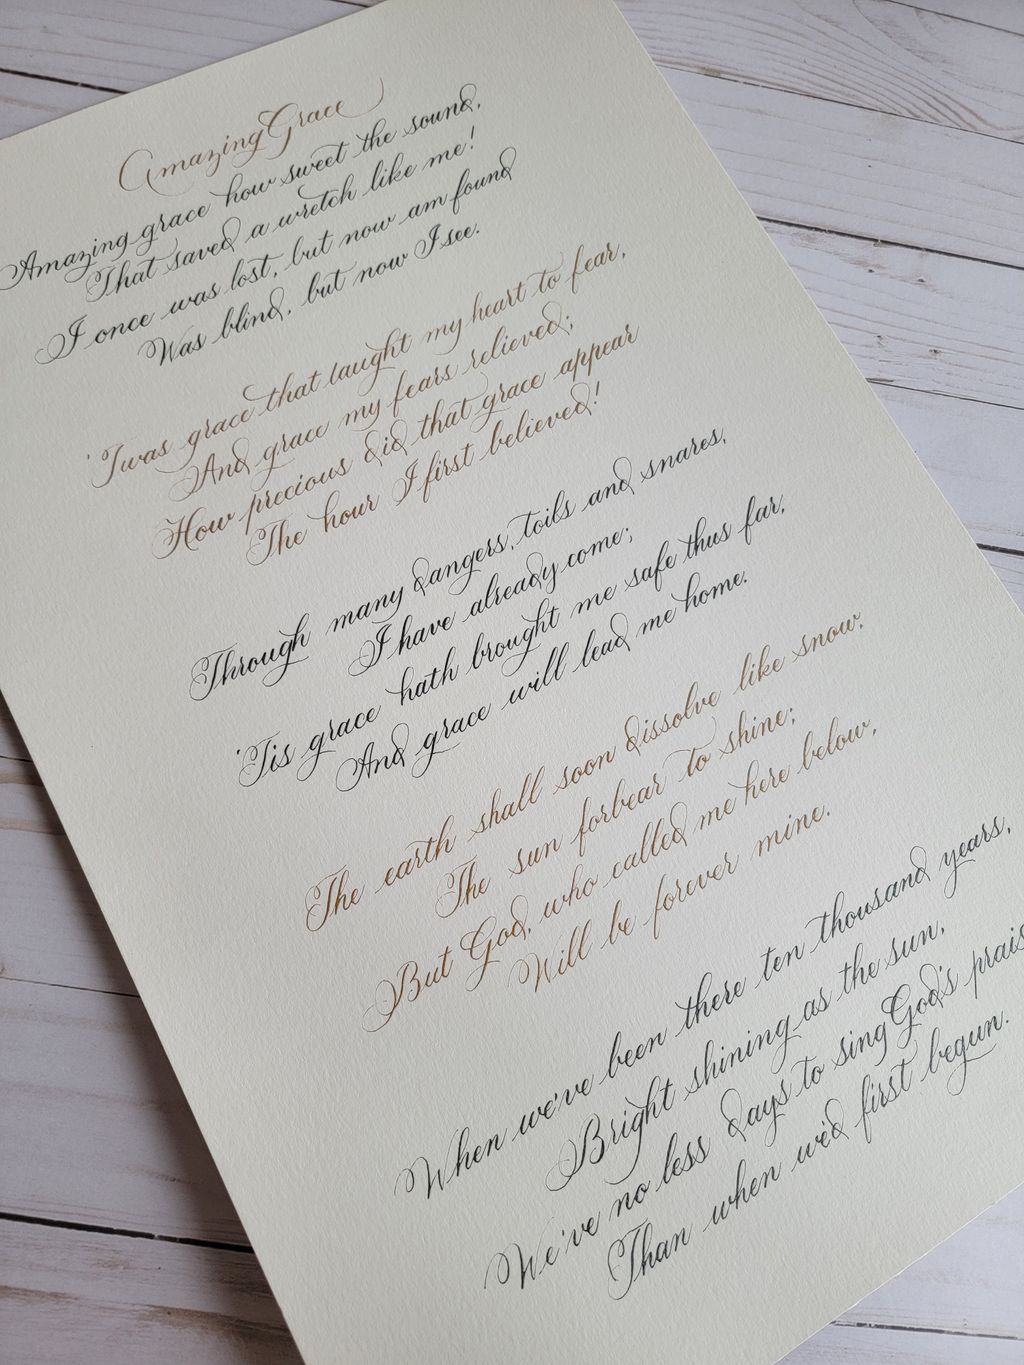 Amazing Grace
Amazing grace how sweet the sound,
That saved a wretch like me!
I once was lost, but now am found
Was blind, but now I see.
'Twas grace that taught my heart to fear,
And grace my fears relieved;
How precious did that grace appear
The hour I first believed!
Through many dangers, toils and snares,
I have already come;
'Tis grace hath brought me safe thus far,
And grace will lead me home.
The earth shall soon dissolve like snow,
The sun forbear to shine;
But God, who called me here below,
Will be forever mine.
When we've been there ten thousand years,
Bright shining as the sun,
We've no less days to sing God's prais
Than when we'd first begun.